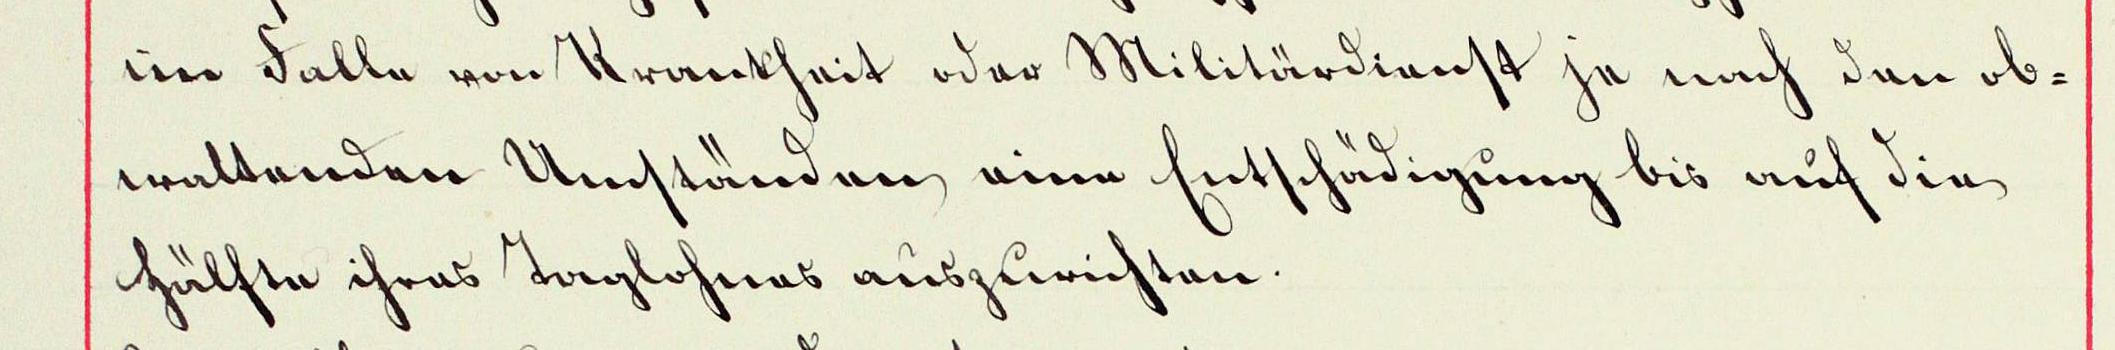 im Falle von Krankheit oder Militärdienst je nach den ob=
waltenden Umständen eine Entschädigung bis auf die
Hälfte ihres Taglohnes auszurichten.